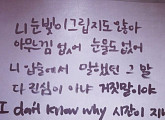 니 눈빛이 그립지도 않아
아무느낌 없어 눈물도 없어
니 입술에서 말했던 그 말
다 진심이 아냐 거짓말이야
I don't know why 시작이